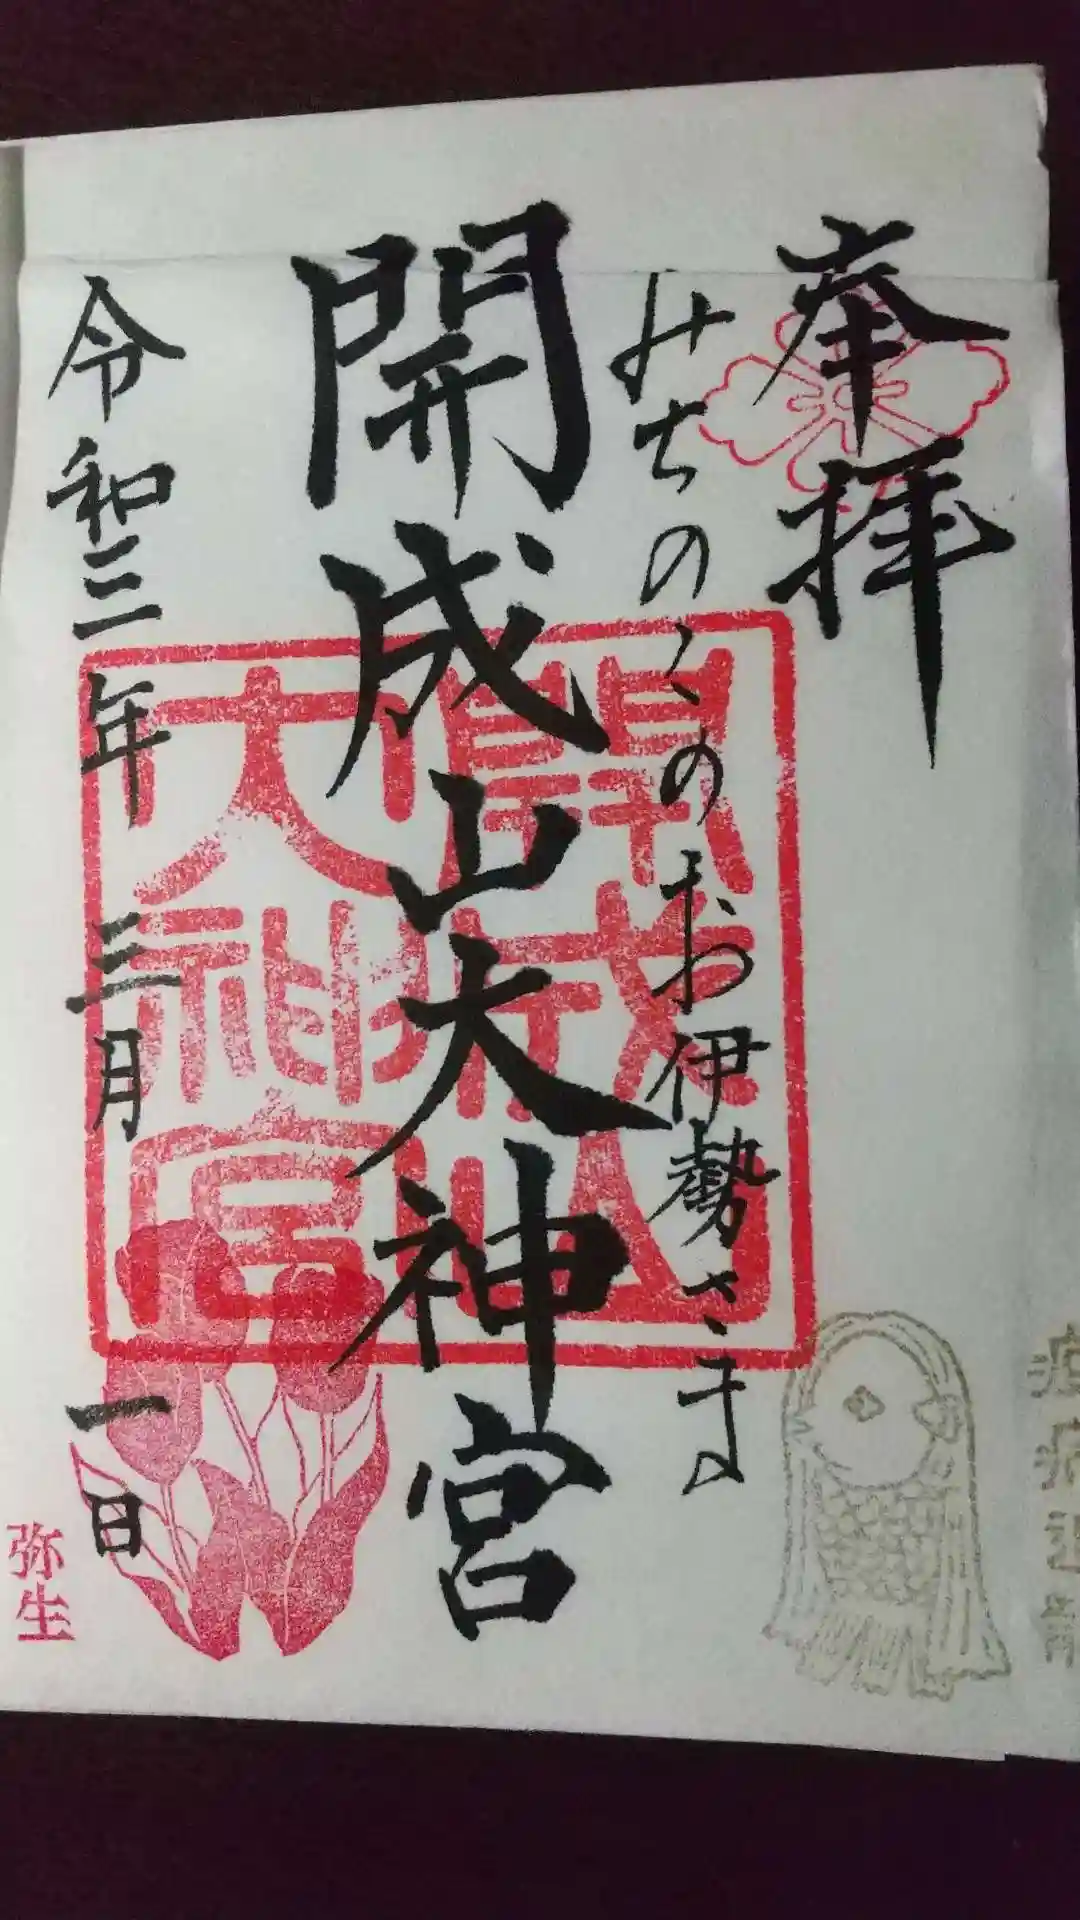 奉拝
みちのくのお伊勢さま
開成山大神宮
令和三年三月一日
開成山
大神宮
弥生